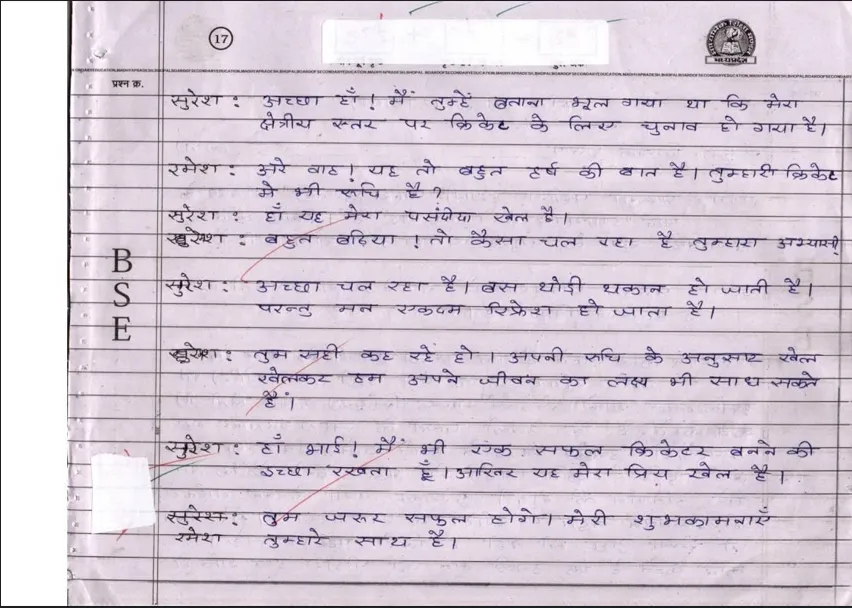 17
मध्यप्रदेश
प्रश्न क्र.
सुरेश : अच्छा हाँ ! मैं तुम्हें बताना भूल गया था कि मेरा
क्षेत्रीय स्तर पर क्रिकेट के लिए चुनाव हो गया है।
रमेश : अरे वाह ! यह तो बहुत हर्ष की बात है। तुम्हारी क्रिकेट
मे भी रूचि है ?
सुरेश : हाँ यह मेरा पसंदीदा खेल है।
रमेश : बहुत बढ़िया ! तो कैसा चल रहा है तुम्हारा अभ्यास?
B
S
E
सुरेश : अच्छा चल रहा है। बस थोड़ी थकान हो जाती है।
परन्तु मन एकदम रिफ्रेश हो जाता है।
रमेश : तुम सही कह रहे हो । अपनी रूचि के अनुसार खेल
खेलकर हम अपने जीवन का लक्ष्य भी साध सकते
हैं।
सुरेश : हाँ भाई ! मैं भी एक सफल क्रिकेटर बनने की
इच्छा रखता हूँ । आखिर यह मेरा प्रिय खेल है।
सुरेश : तुम जरूर सफल होगे। मेरी शुभकामनाएँ
रमेश तुम्हारे साथ है।